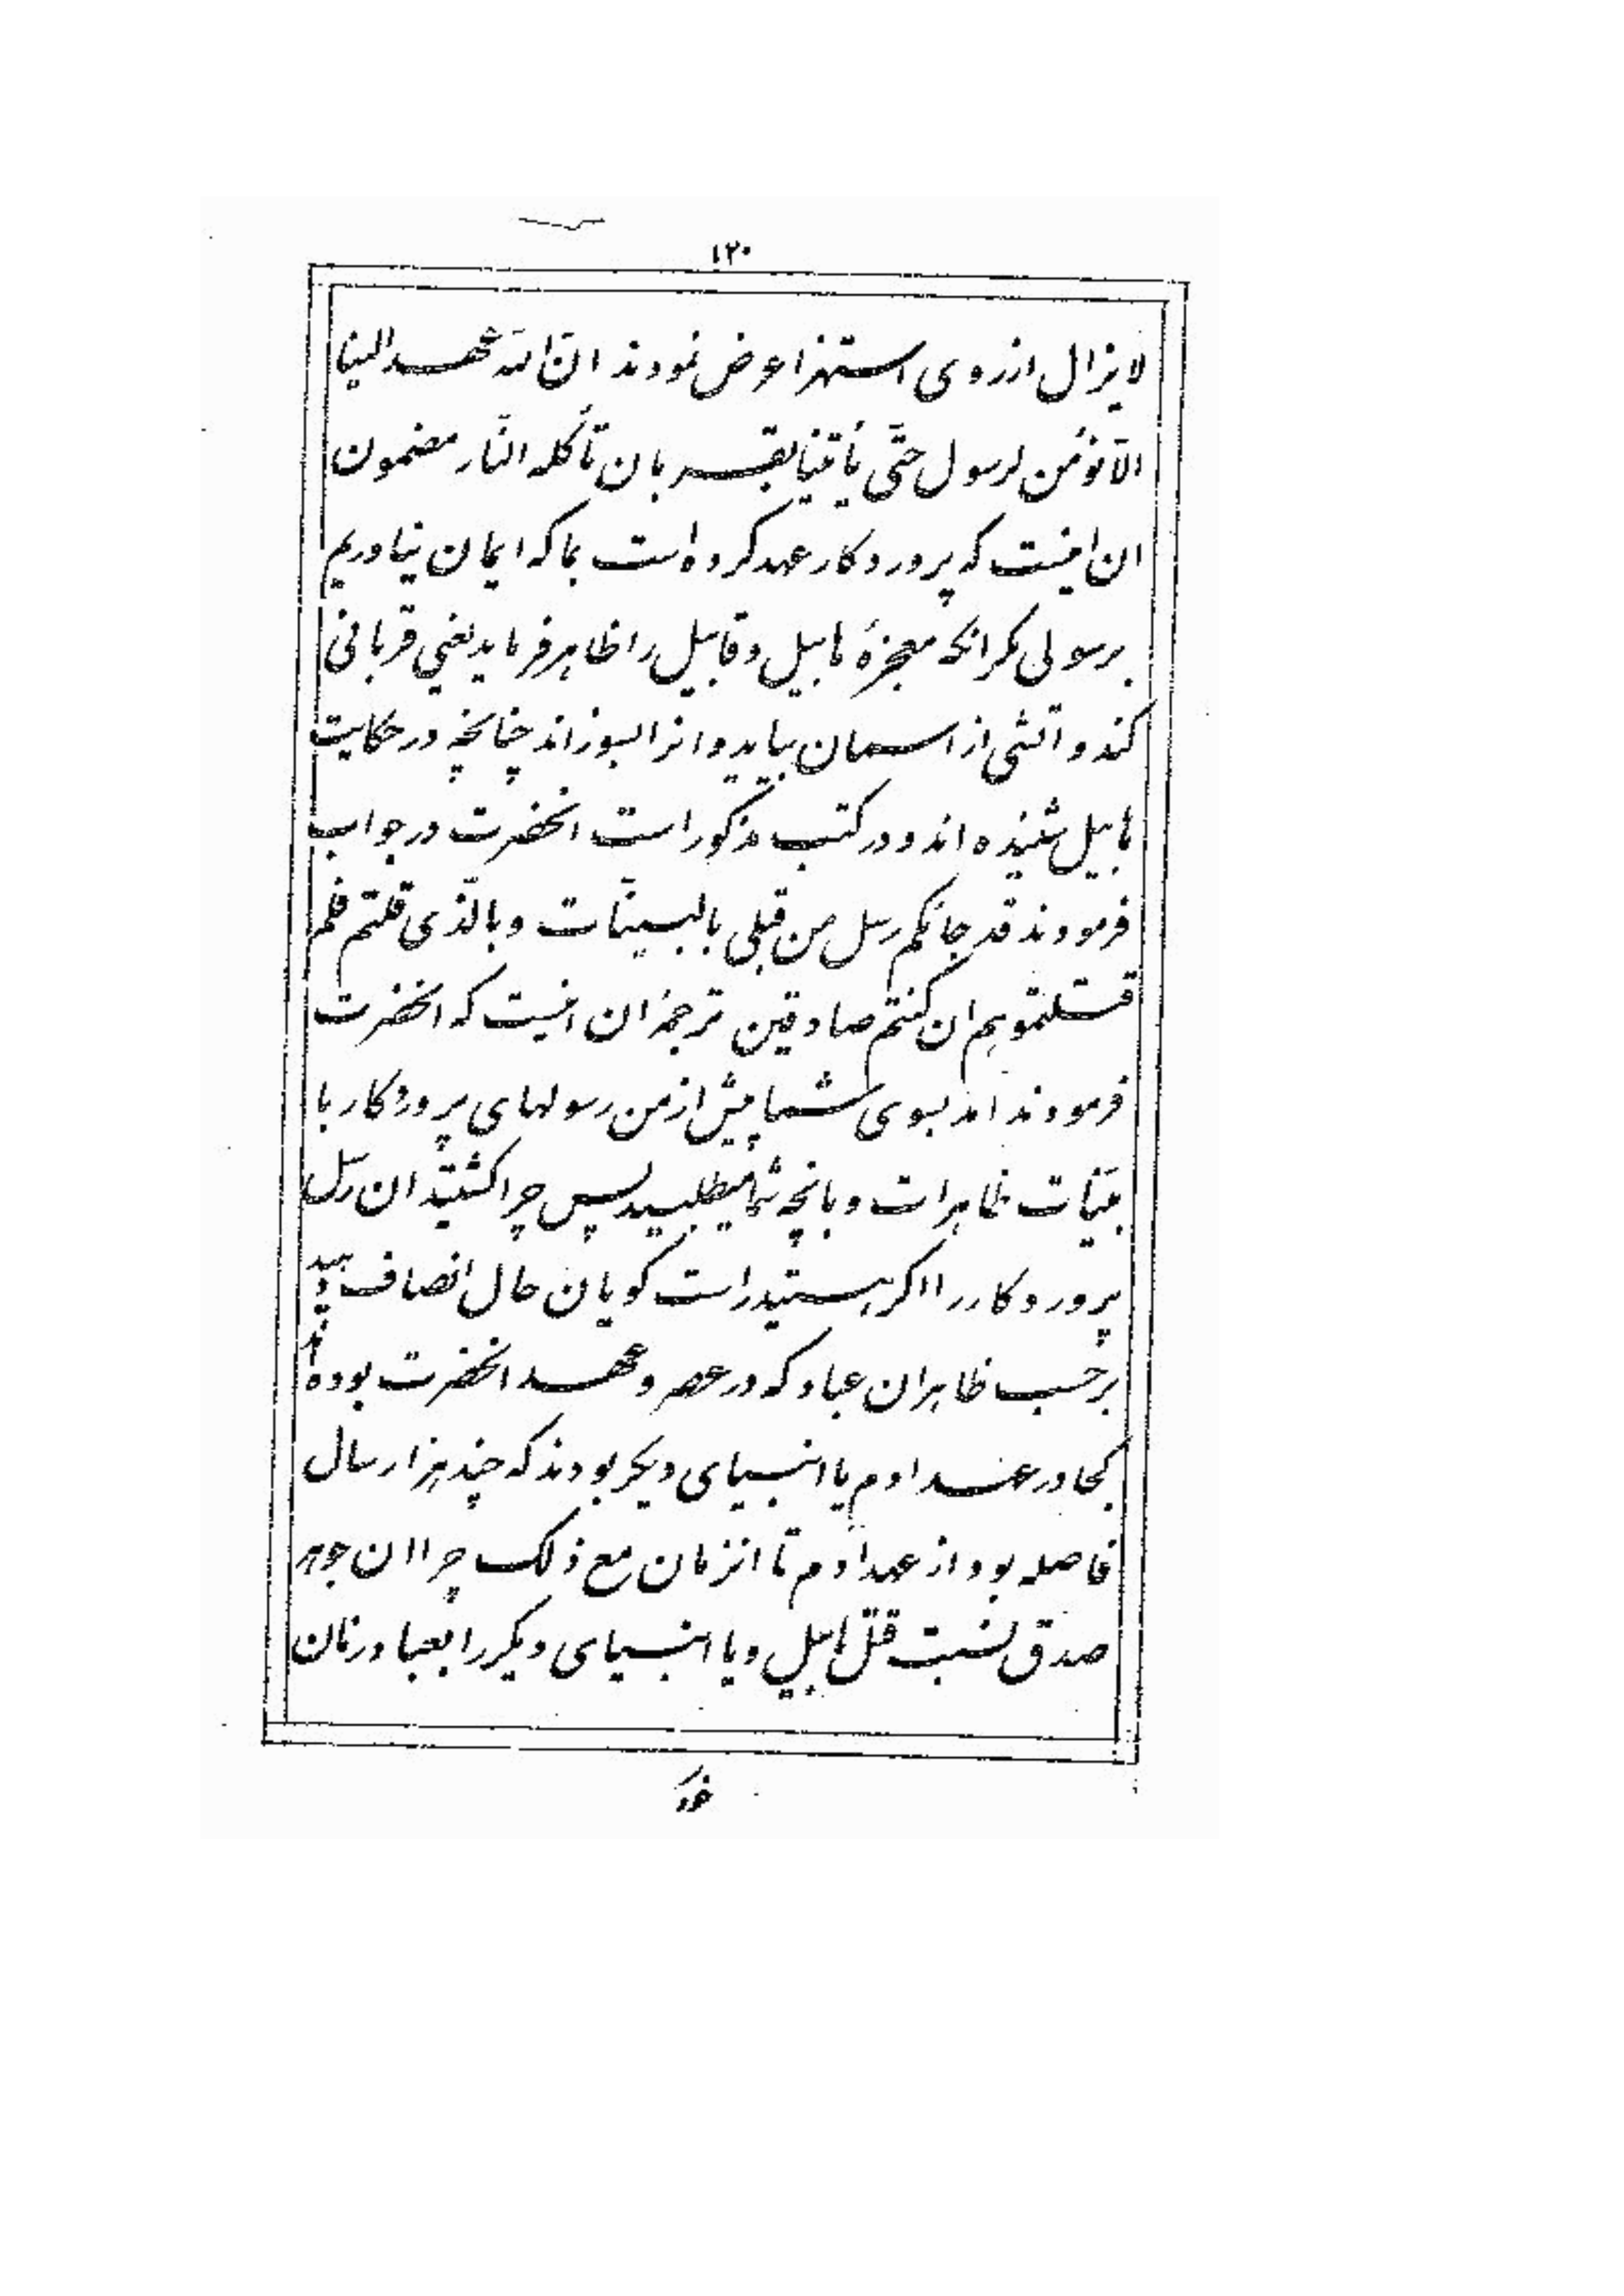 ۱۲۰
لایزال از روی استهزا عرض نمودند انّ اللّه عهد الینا
الّا نؤمن لرسول حتّی یأتینا بقربان تأکله النّار مضمون
ان اینست که پروردکار عهد کرده است بما که ایمان نیاوریم
برسولی مکر انکه معجزهٔ هابیل و قابیل را ظاهر فرماید یعنی قربانی
کند و اتشی از اسمان بیاید و انرا بسوزاند چنانچه در حکایت
هابیل شنیده اند و در کتب مذکور است انحضرت در جواب
فرمودند قد جائکم رسل من قبلی بالبیّنات و بالّذی قلتم فلم
قتلتموهم ان کنتم صادقین ترجمهٔ ان اینست که انحضرت
فرمودند امد بسوی شما پیش از من رسولهای پروردکار با
بیّنات ظاهرات و بانچه شما میطلبید پس چرا کشتید ان رسل
پروردکار را اکر هستید راست کویان حال انصاف دهید
برحسب ظاهر ان عباد که در عصر و عهد انحضرت بوده‌اند
کجا در عهد ادم یا انبیای دیکر بودند که چند هزار سال
فاصله بود از عهد آدم تا انزمان مع ذلک چرا ان جوهر
صدق نسبت قتل هابیل و یا انبیای دیکر را بعباد زمان
خود